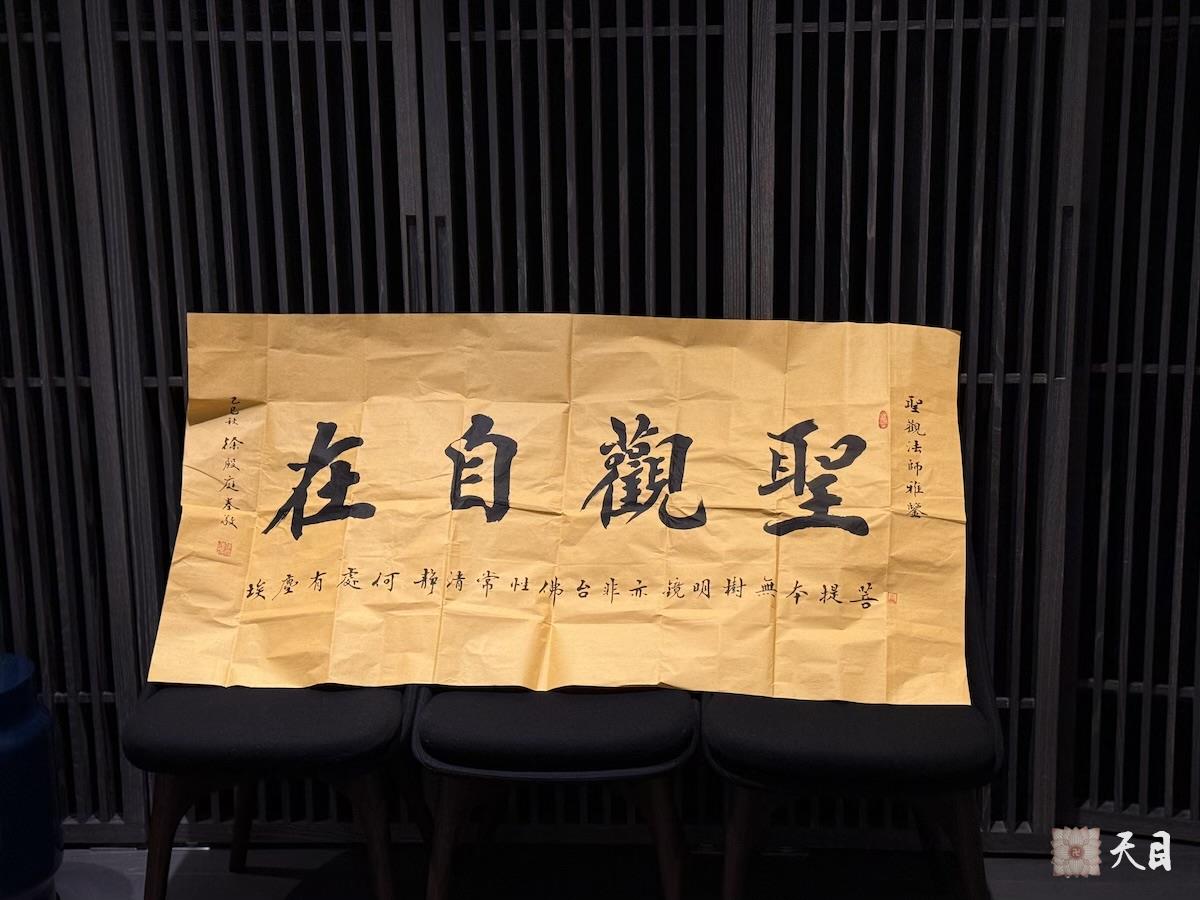 聖觀法師雅鑒
聖觀自在
菩提本無樹明鏡亦非台佛性常清靜何處有塵埃
乙巳秋 徐 庭奉敬
天目